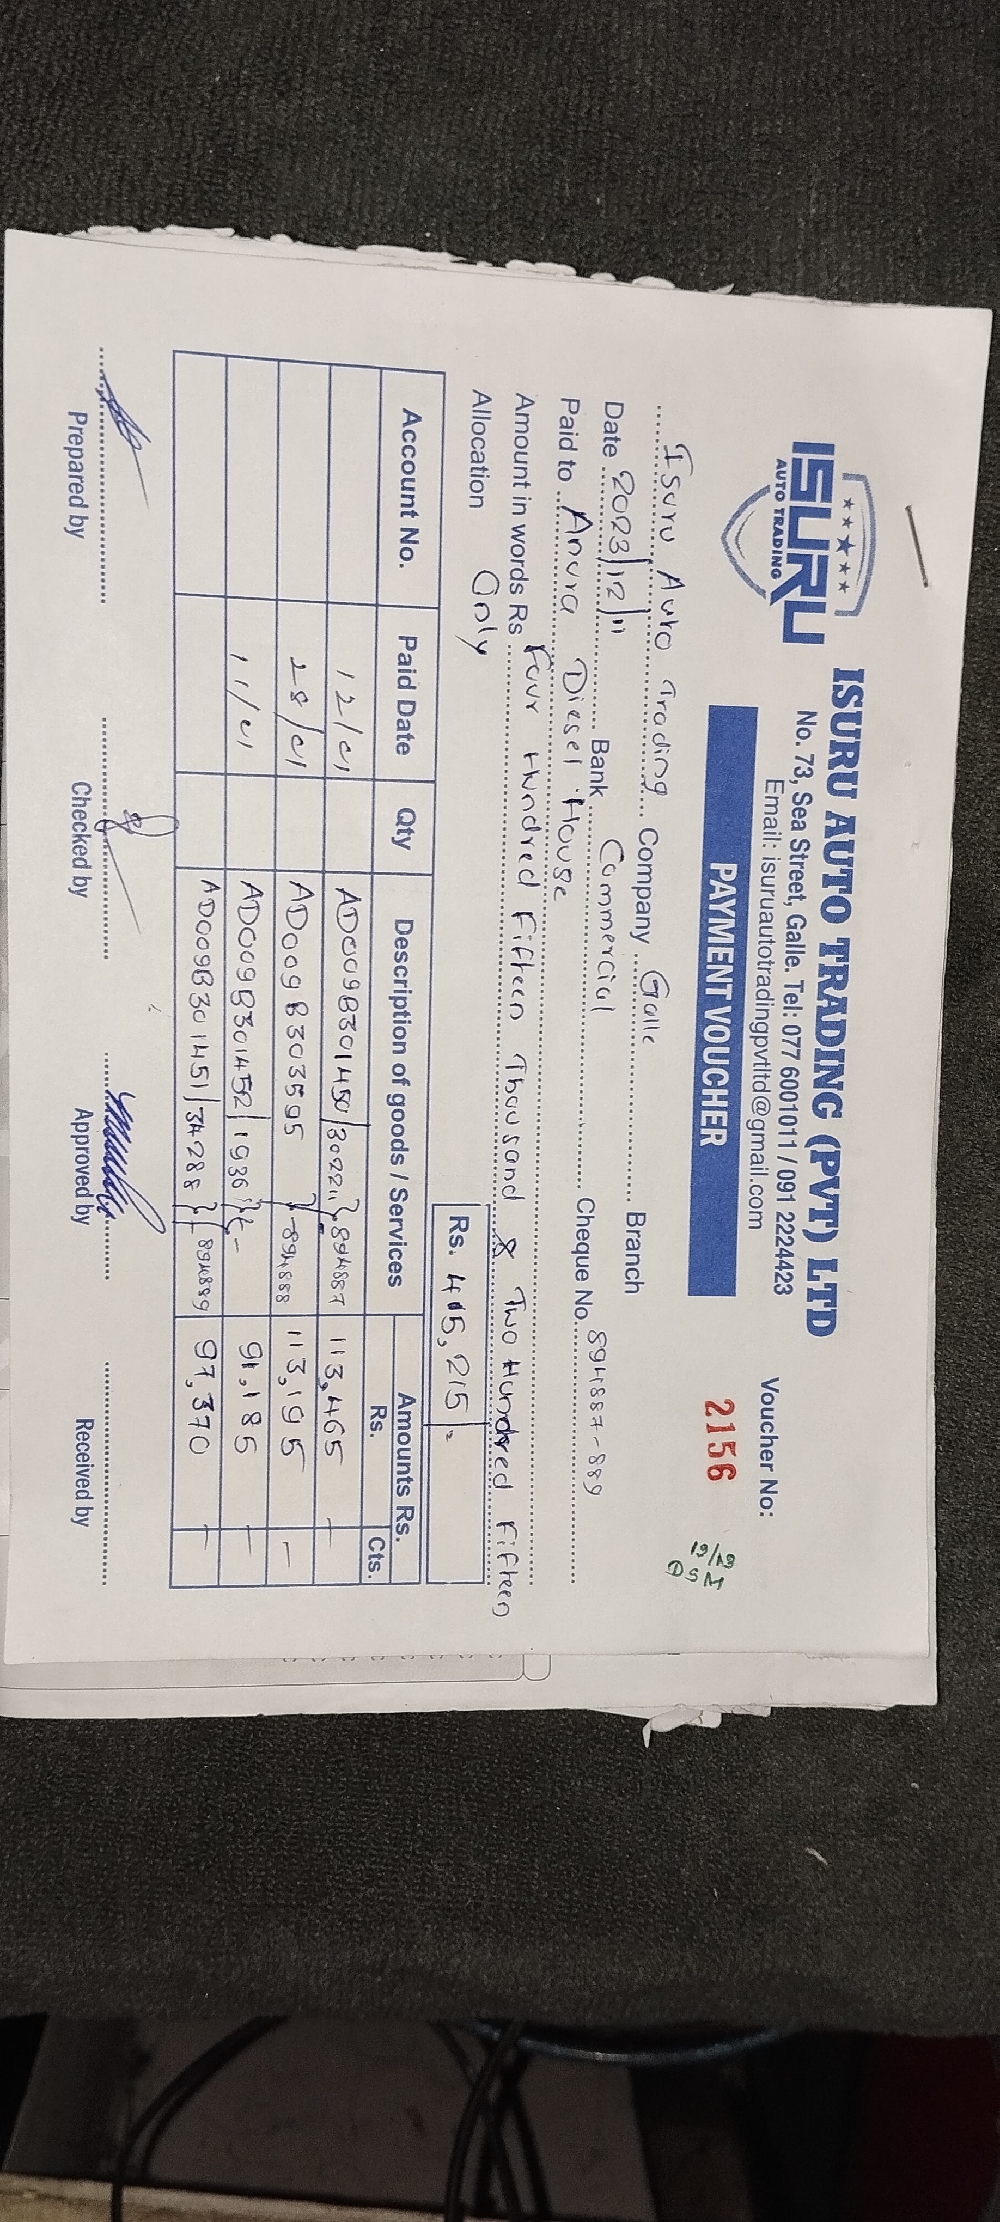 ISURU
AUTO TRADING
ISURU AUTO TRADING (PVT) LTD
No. 73, Sea Street, Galle. Tel: 077 6001011 / 091 2224423
Email: isuruautotradingpvtltd@gmail.com
PAYMENT VOUCHER
Voucher No:
2156
19/19
DSM
Isuru Auto Trading Company Galle Branch
Date 2023/12/11 Bank Commercial Cheque No. 894887-889
Paid to Anura Diesel House
Amount in words Rs Four Hundred Fifteen Thousand & Two Hundred Fifteen
Allocation Only
Rs. 415,215/=
Account No. Paid Date Qty Description of goods / Services Amounts Rs.
Rs. Cts.
12/01 AD009B301450/30221 } 894887 113,465 —
28/01 AD009B303595 } -894888 113,195 —
11/01 AD009B301452/1936 } 91,185 —
AD009B301451/34288 } 894889 97,370 —
Prepared by Checked by Approved by Received by